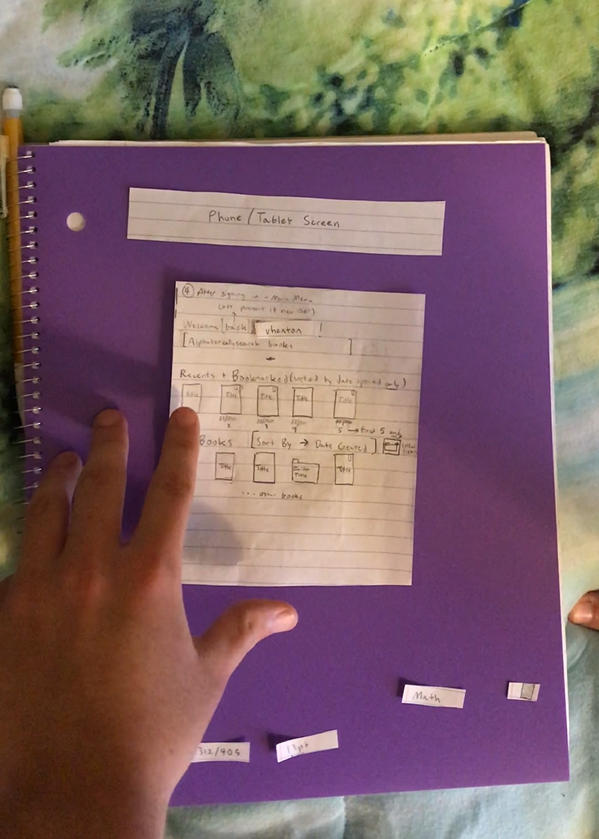 Phone/Tablet Screen
④ After signing in - Main Menu
(not present if new user)
Welcome [back] vhenton !
[Alphabetically search books ]
Recents + Bookmarked (sorted by date opened only)
Title Title Title Title Title
5 → first 5 only
Books [Sort By → Date Created]
Title Title Title Title
... other books
Math
312/405
13pt